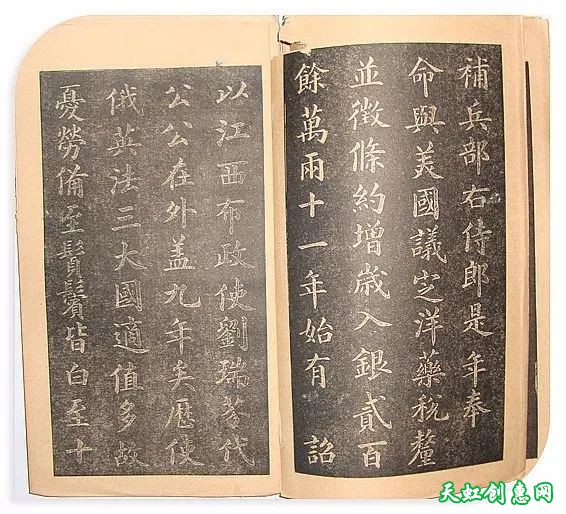 補兵部右侍郎是年奉
命與美國議定洋藥稅釐
並徵條約增歲入銀貳百
餘萬兩十一年始有 詔
以江西布政使劉瑞芬代
公公在外蓋九年矣歷使
俄英法三大國適值多故
憂勞備至鬢鬚皆白至十
天虹创意网